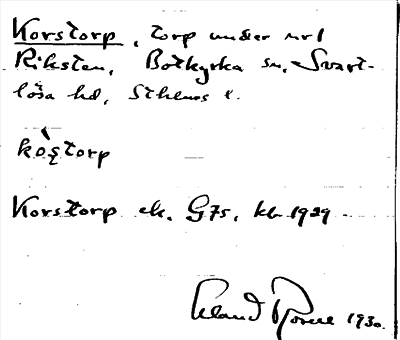 Korstorp, torp under nr 1
Riksten, Botkyrka sn, Svart-
lösa hd, Sthlms l.
kòştorp
Korstorp ek. G75, kl. 1929
Erland 1930.